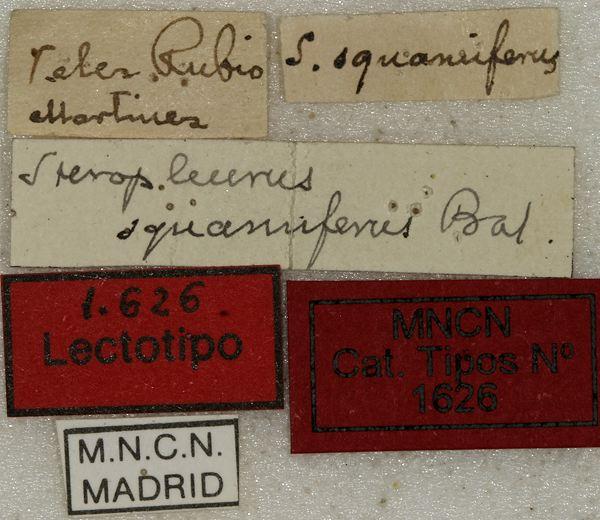 Velez Rubio
Martinez
S. squamiferus
Steropleurus
squamiferus Bol.
1.626
Lectotipo
MNCN
Cat. Tipos Nº
1626
M.N.C.N.
MADRID